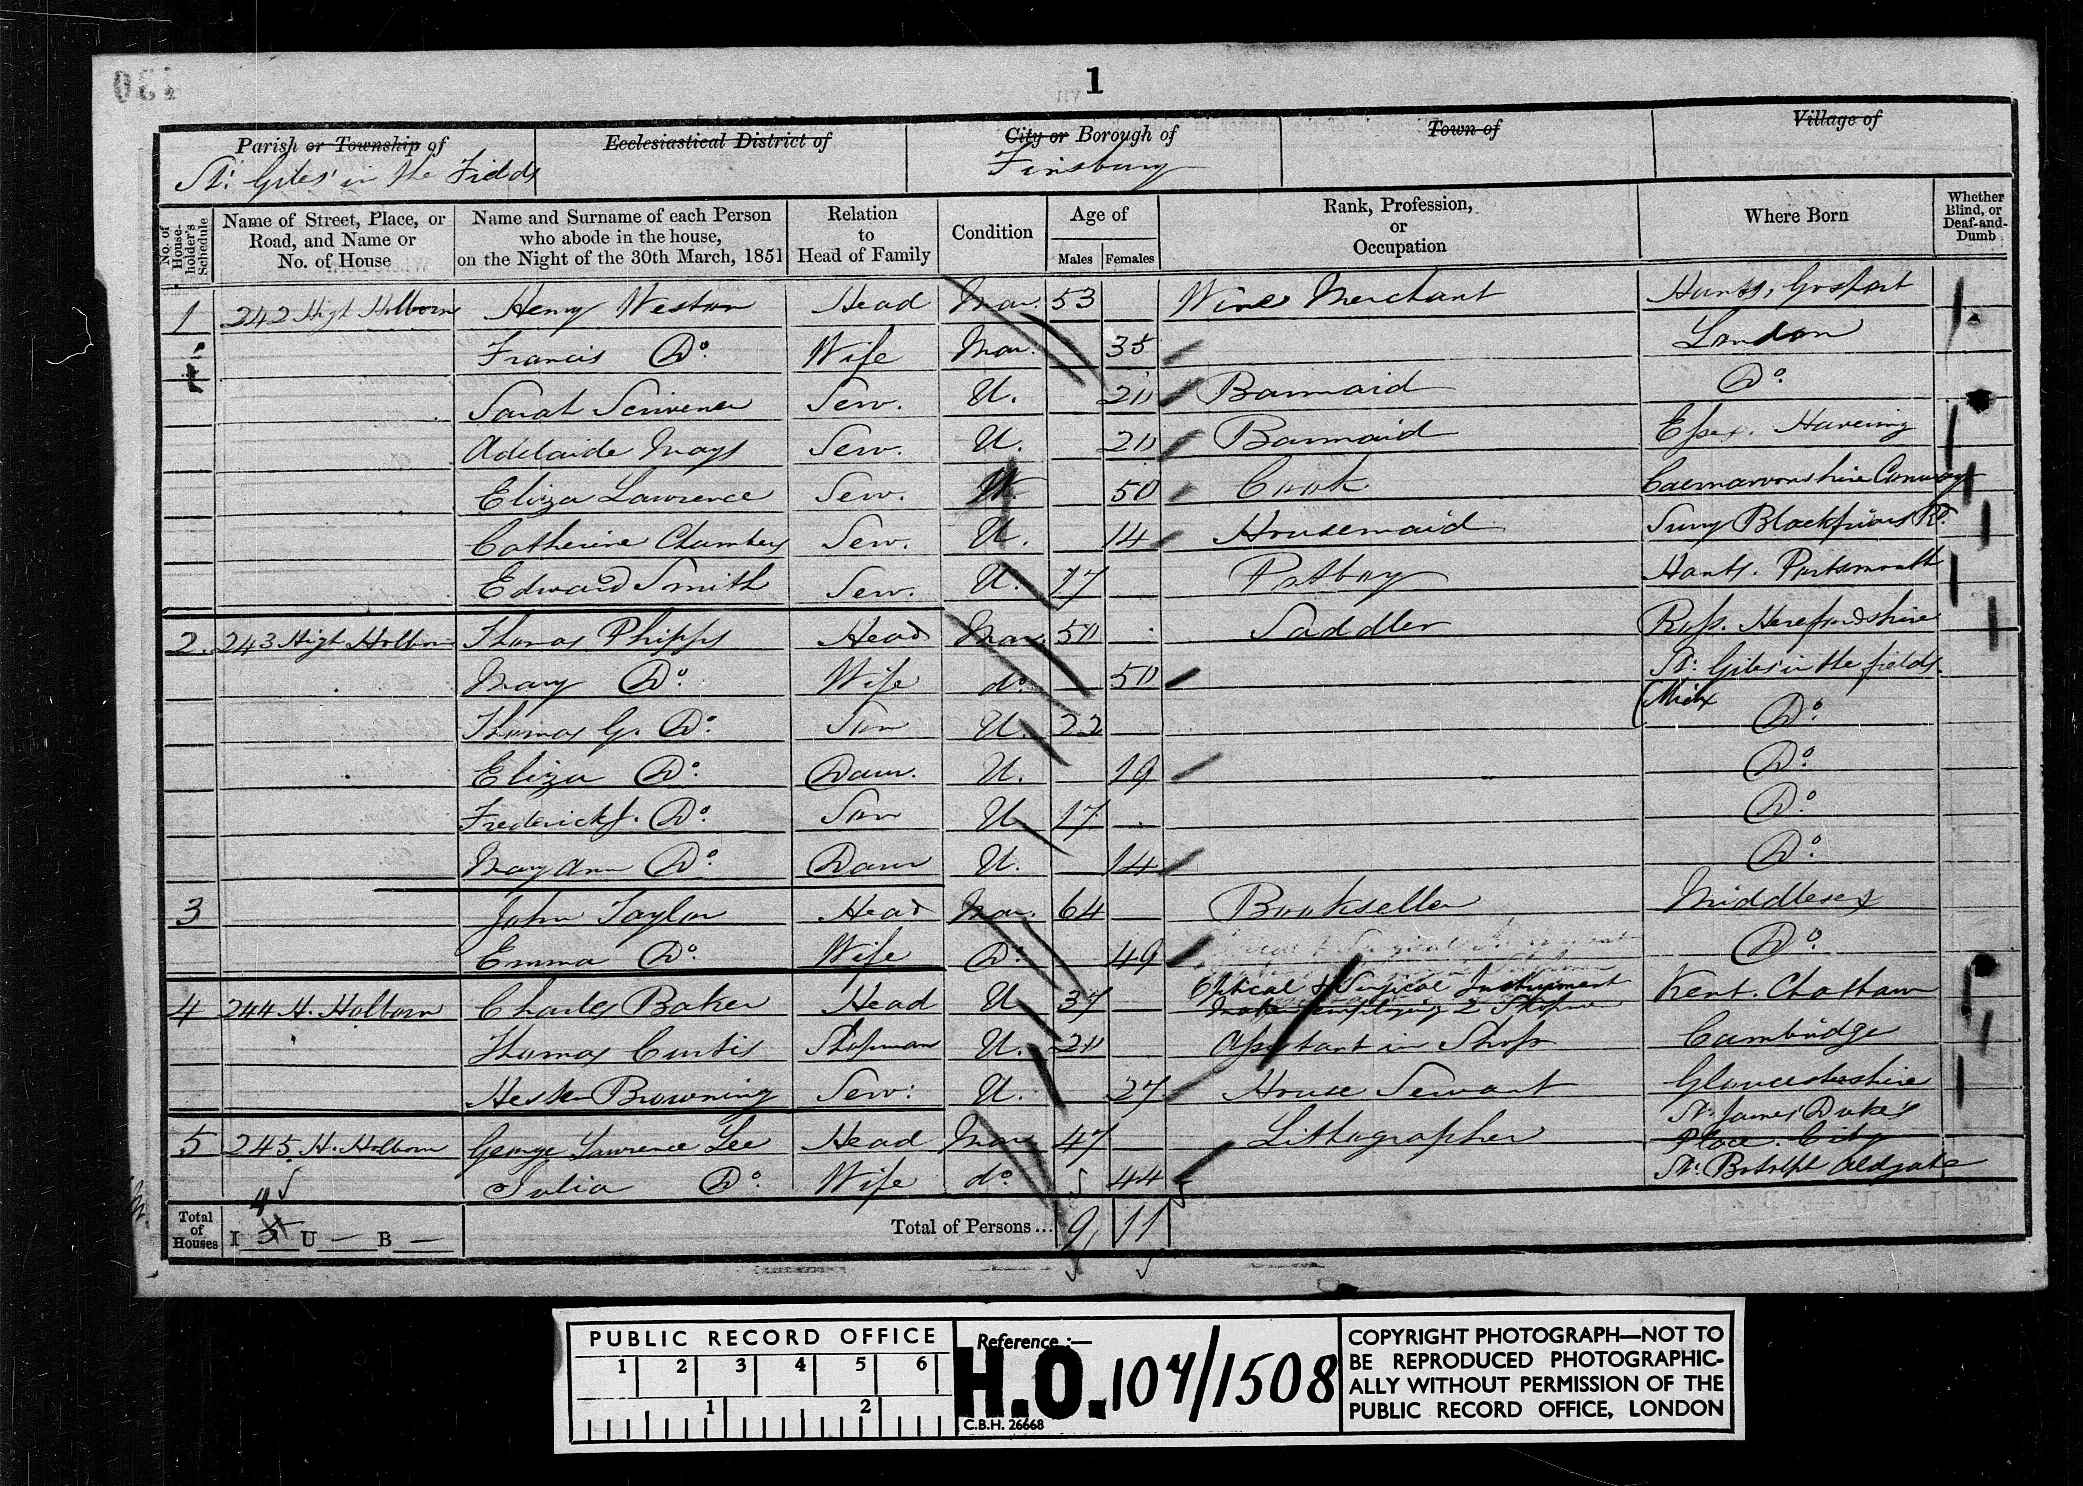 1
Parish or Township of
Ecclesiastical District of
City or Borough of
Town of
Village of
St. Giles' in the Fields
Finsbury
No. of House-holder's Schedule
Name of Street, Place, or Road, and Name or No. of House
Name and Surname of each Person who abode in the house, on the Night of the 30th March, 1851
Relation to Head of Family
Condition
Age of
Males
Females
Rank, Profession, or Occupation
Where Born
Whether Blind, or Deaf-and-Dumb
1 242 High Holborn Henry Weston Head Mar. 53 Wine Merchant Hants, Gosport
Francis Do. Wife Mar. 35 London
Sarah Scrivener Serv. U. 20 Barmaid Do.
Adelaide Mays Serv. U. 20 Barmaid Essex. Havering
Eliza Lawrence Serv. 50 Cook Caernarvonshire Conway
Catherine Chambers Serv. U. 14 Housemaid Surry Blackfriars Rd.
Edward Smith Serv. U. 17 Potboy Hants. Portsmouth
2. 243 High Holborn Thomas Phipps Head Mar. 50 Saddler Ross. Herefordshire
Mary Do. Wife do. 50 St. Giles in the fields
(Midx
Thomas G. Do. Son U. 22 Do.
Eliza Do. Daur. U. 19 Do.
Frederick J. Do. Son U. 17 Do.
Mary Ann Do. Daur U. 14 Do.
3 John Taylor Head Mar. 64 Bookseller Middlesex
Emma Do. Wife Do. 49 Do.
4 244 H. Holborn Charles Baker Head U 37 Optical & Surgical Instrument Kent. Chatham
Maker employing 2
Thomas Curtis Shopman U. 20 Assistant in Shop Cambridge
Hester Browning Serv. U. 27 House Servant Gloucestershire
5 245 H. Holborn George Lawrence Lee Head Mar. 47 Lithographer St. James' Dukes
Place. City
Julia Do. Wife do. 44 St. Botolph Aldgate
4
Total of Houses I U — B —
Total of Persons... 9 11
PUBLIC RECORD OFFICE
1 2 3 4 5 6
1 2
Reference :—
H.O. 107/1508
C.B.H. 26668
COPYRIGHT PHOTOGRAPH—NOT TO
BE REPRODUCED PHOTOGRAPHIC-
ALLY WITHOUT PERMISSION OF THE
PUBLIC RECORD OFFICE, LONDON